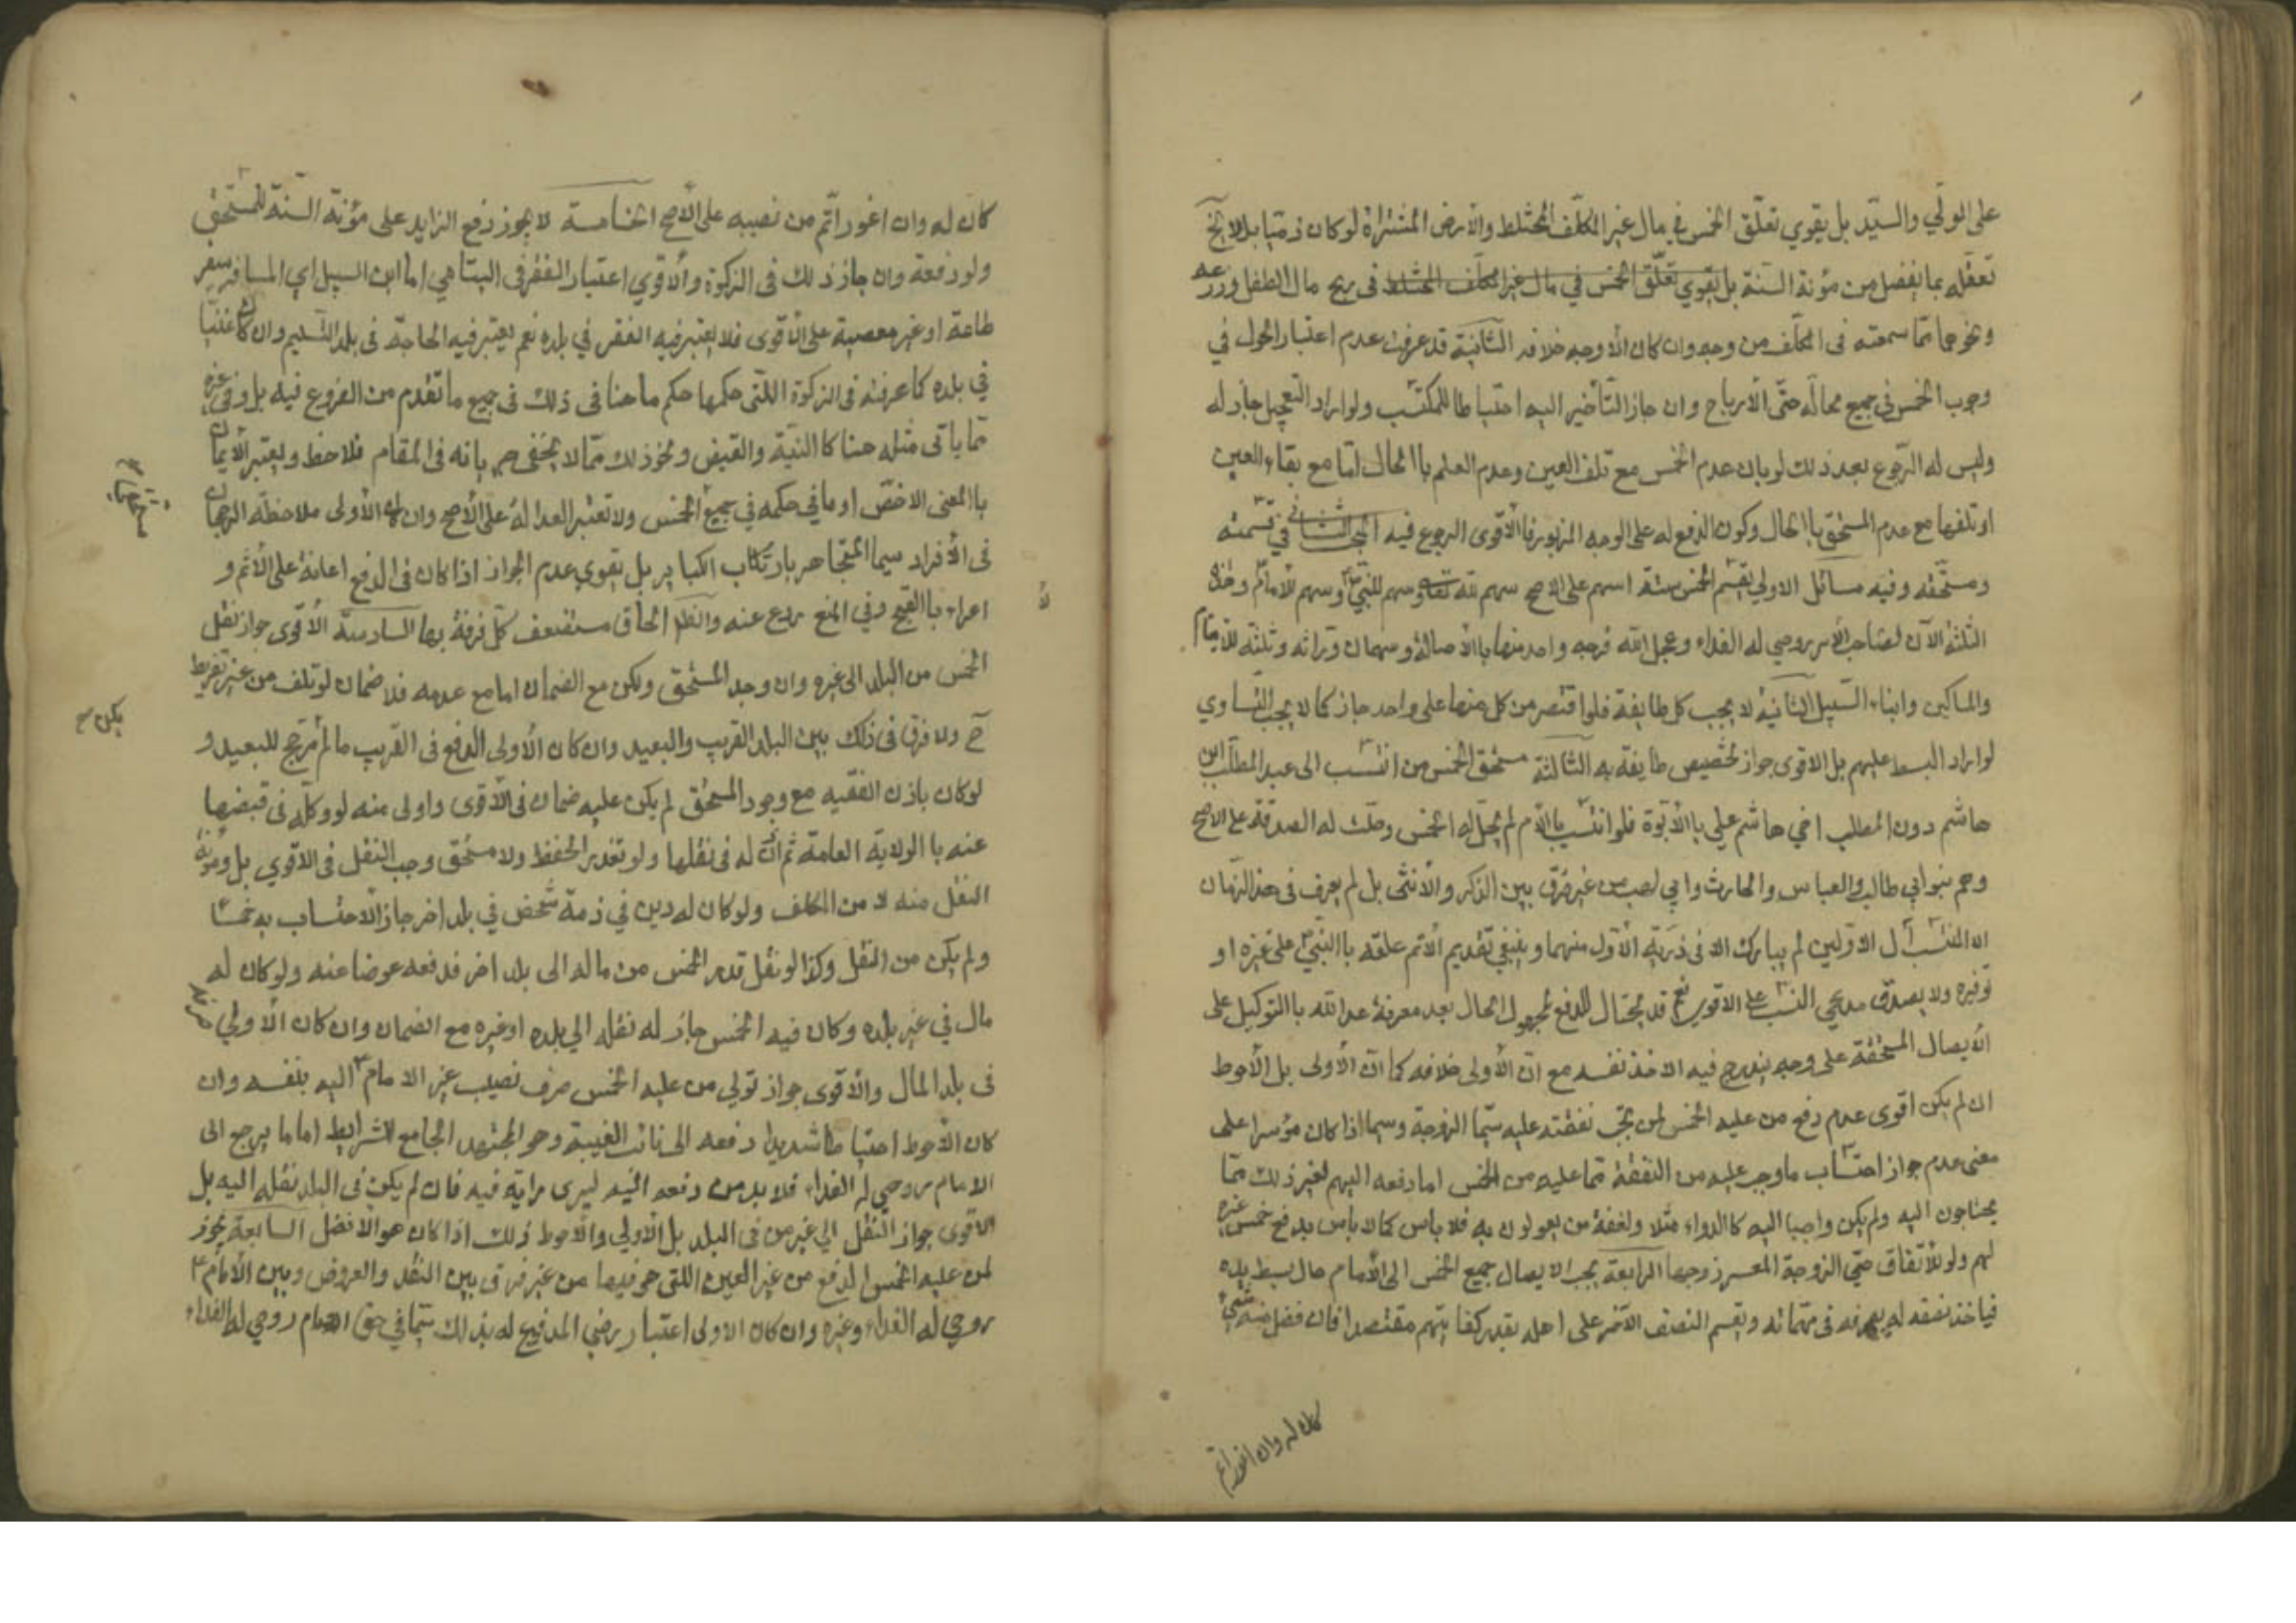 على الولي والسيّد بل يقوي تعلّق الخمس في مال غير المكلّف المختلط والأرض المشتراة لو كان ذميّا بل لا بخ
تعقّله بما يفضل من مؤنة السنة بل يقوي تعلّق الخمس في مال غير المكلف المختلط في ربح مال الطفل وزرعه
ونحوهما مما سمعته في المكلّف من وجه وان كان الأوجه خلافه الثانية قد عرفت عدم اعتبار الحول في
وجوب الخمس في جميع محالّه حتّى الأرباح وان جاز التأخير اليه احتياطا للمكتسب ولو اراد التعجيل جاز له
وليس له الرّجوع بعد ذلك لو بان عدم الخمس مع تلف العين وعدم العلم باالحال امّا مع بقاء العين
او تلفها مع عدم المستحق باالحال وكون الدفع له على الوجه المزبور فاالأقوى الرجوع فيه المبحث الثاني في قسمته
ومستحقه وفيه مسائل الاولي يقسّم الخمس ستة اسهم على الاصح سهم لله تعا وسهم للنبيّ وسهم للأمام وهذه
الثلثة الآن لصاحب الأمر روحي له الفداء وعجل الله فرجه واحد منها باالأصالة وسهمان وراثه وثلثه للأيتام
والمساكين وابناء السّبيل الثانية لا يجب كل طايفة فلو اقتصر من كل منها على واحد جاز كما لا يجب التّساوي
لو اراد البسط عليهم بل الاقوى جواز تخصيص طايفة به الثالثة مستحق الخمس من انتسب الى عبد المطّلب ابن
هاشم دون المطلب اخي هاشم علي باالأبوّة فلو انتسب باالأم لم يحلّ له الخمس وحلّت له الصدقة على الاصح
وهم بنو ابي طالب والعباس والحارث وابي لهب من غير فرق بين الذكر والأنثى بل لم يعرف في هذ الزمان
الا المنتسب ل الاوّلين لم يبارك الا في ذريّة الأوّل منهما وينبغي تقديم الأتم علقه باالنّبيّ على غيره او
توفيره ولا يصدق مدعي النسب على الاقوى نعم قد يحتال للدفع لمجهول الحال بعد معرفة عدالته باالتوكيل على
الأيصال للمستحقه على وجه يندرج فيه الاخذ نفسه مع انّ الأولى خلافه كما انّ الأولى بل الأحوط
ان لم يكن اقوى عدم دفع من عليه الخمس لمن تجب نفقته عليه سيّما الزوجة وسيما اذا كان مؤسرا على
معنى عدم جواز احتساب ما وجب عليه من النفقة مما عليه من الخمس اما دفعه اليهم لغير ذلك ممّا
يحتاجون اليه ولم يكن واجبا اليه كاالدواء مثلا ولنفقة من يعولون به فلا باس كما لا باس بدفع خمس غيره
لهم ولو للأتفاق حتّي الزوجة المعسر زوجها الرابعة يجب الايصال جميع الخمس الى الأمام حال بسط يده
فياخذ نفقه له يصرفه في مهماته ويقسم النصف الآخر على اهله بقدر كفايتهم مقتصدا فان فضل منه شيئ
كان له وان اعوز اتم
كان له وان اعوز اتّم من نصيبه على الأصح الخامسة لا يجوز دفع الزايد على مؤنة السّنة للمستحق
ولو دفعة وان جاز ذلك في الزكوة والأقوي اعتبار الفقر في اليتامي اما ابن السبيل اي المسافر سفر
طاعة او غير معصية على الأقوى فلا يعتبر فيه الفقر في بلده نعم يعتبر فيه الحاجة في بلد التسليم وان كان غنيّا
في بلده كما عرفته في الزكوة اللتى حكمها حكم ما هنا في ذلك في جميع ما تقدم من الفروع فيه بل وفي غيره
مما ياتي مثله هنا كاالنيّة والقبض ونحو ذلك ممّا لا يخفي جريانه في المقام فلاحظ ويعتبر الأيمان
باالمعنى الاخصّ او ما في حكمه في جميع الخمس ولا تعتبر العدالة على الأصح وان كان الأولى ملاحظة الرجحان
في الأفراد سيما المتجاهر بارتكاب الكباير بل يقوي عدم الجواز اذا كان في الدفع اعانة على الأثم و
اغراء باالقبيح وفي المنع ردع عنه والظ الحاق مستضعف كلّ فرقة بها السادسة الأقوى جواز نقل
الخمس من البلد الى غيره وان وجد المستحق ولكن مع الضمان اما مع عدمه فلا ضمان لو تلف من غير تفريط
ح ولا فرق في ذلك بين البلد القريب والبعيد وان كان الأولى الدفع في القريب ما لم مرجح للبعيد و
يكن
لو كان باذن الفقيه مع وجود المستحق لم يكن عليه ضمان في الأقوى واولى منه لو وكّله في قبضها
عنه باالولاية العامة ثم اذن له في نقلها ولو تعذر الحفظ ولا مستحق وجب النقل في الاقوي بل ومؤنة
النقل منه لا من المكلف ولو كان له دين في ذمة شخص في بلد اخر جاز الاحتساب به خمسا
ولم يكن من النقل وكذا لو نقل قدر الخمس من ماله الى بلد اخر فدفعه عوضا عنه ولو كان له
مال في غير بلده وكان فيه الخمس جاز له نقله الي بلده او غيره مع الضمان وان كان الأولي صرفه
في بلد المال والأقوى جواز تولي من عليه الخمس صرف نصيب غير الامام اليه بنفسه وان
كان الأحوط احتياطا شديدا دفعه الى نائب الغيبة وهو المجتهد الجامع للشرايط اما ما يرجع الى
الامام روحي له الفداء فلا بد من دفعه اليه ليرى رايه فيه فان لم يكن في البلد نقله اليه بل
الاقوى جواز النقل الي غير من في البلد بل الأولي والأحوط ذلك اذا كان هو الافضل السابعة يجوز
لمن عليه الخمس الدفع من غير العين اللتى هو فيها من غير فرق بين النقد والعروض وبين الأمام
روحي له الفداء وغيره وان كان الاولى اعتبار رضي المدفوع له بذلك سيّما في حق الامام روحي له الفداء